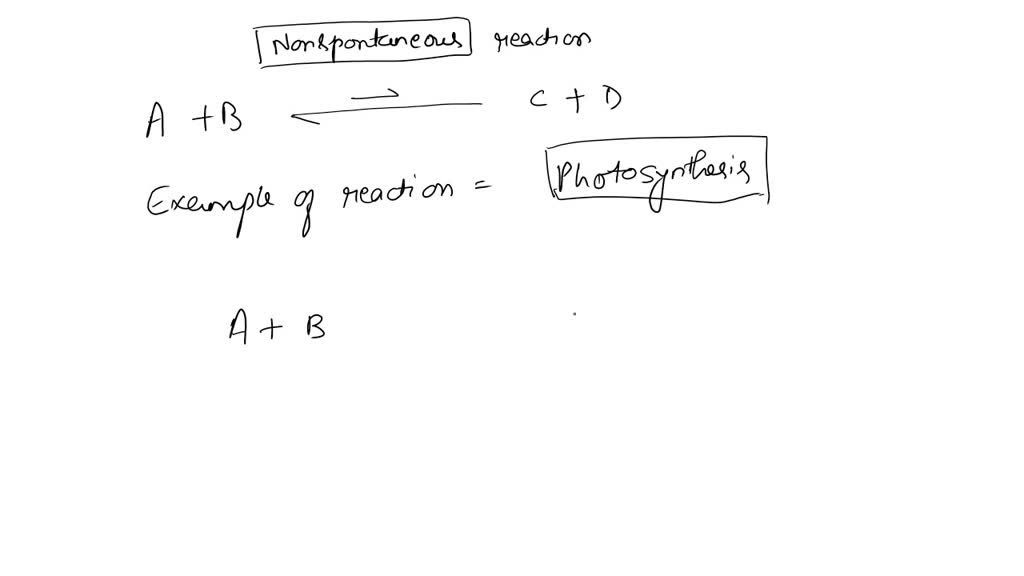 Nonspontaneous reaction
A + B ⇌ C + D
Example of reaction = Photosynthesis
A + B